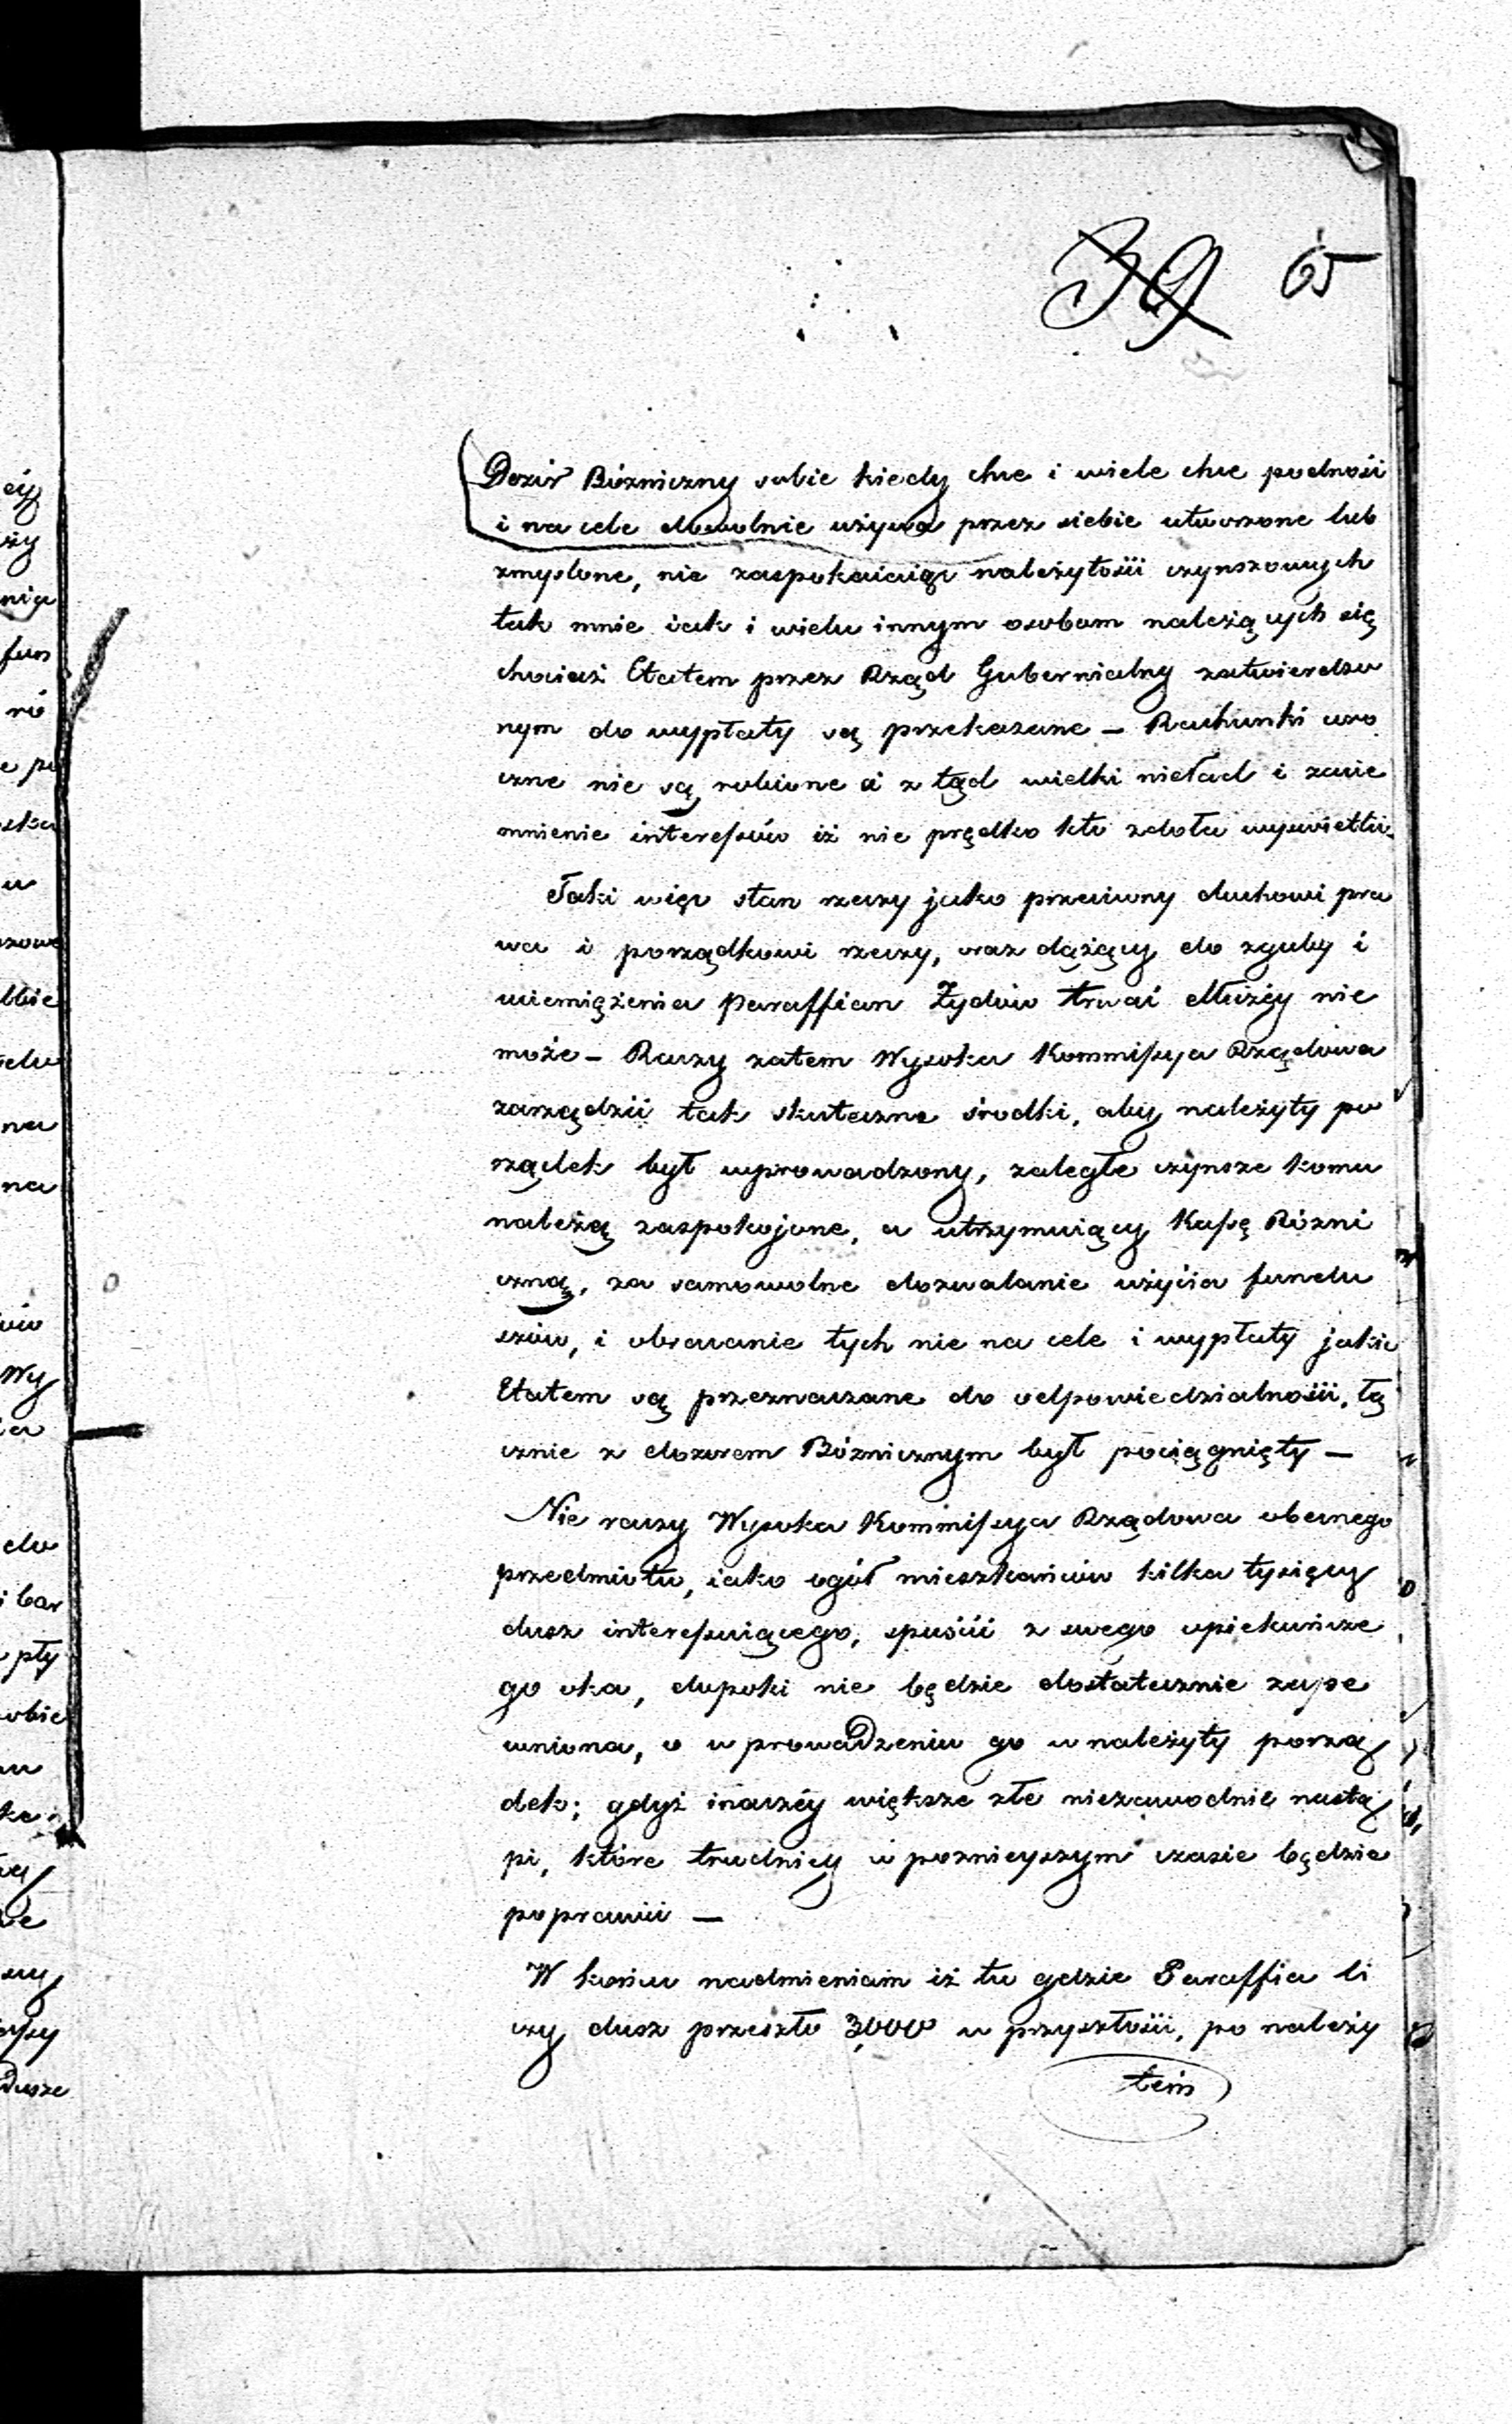 39 65
Dozór Bózniczny sobie kiedy chce i wiele chce podnosi
i na cele dowolnie używa przez siebie utworzone lub
zmyslone, nie zaspokaiaiąc należytości czynszowych
tak mnie iak i wielu innym osobom należących się
chociaż Etatem przez Rząd Gubernialny zatwierdzo
nym do wypłaty są przekazane – Rachunki uro
czne nie są robione a z tąd wielki nieład i zacie
mnienie interessów iż nie prędko kto zdoła wyswietlić.
Taki więc stan rzeczy jako przeciwny duchowi pra
wa i porządkowi rzeczy, oraz dążący do zguby i
uciemiężenia Paraffian Żydów trwać dłużéy nie
może – Raczy zatem Wysoka Kommissya Rządowa
zarządzić tak skuteczne środki, aby należyty po
rządek był wprowadzony, zaległe czynsze komu
należą zaspokojone, a utrzymuiący Kassę Bózni
czną, za samowolne dozwalanie użycia fundu
szów, i obracanie tych nie na cele i wypłaty jakie
Etatem są przeznaczane do odpowiedzialności, łą
cznie z dozorem Bózniczym był pociągnięty –
Nie raczy Wysoka Kommissya Rządowa obecnego
przedmiotu, iako ogół mieszkańców kilka tysięcy
dusz interessuiącego, spuścić z swego opiekuńcze
go oka, dopoki nie będzie dostatecznie zape
wniona, o wprowadzeniu go w należyty porzą
dek; gdyż inaczéy większe złe niezawodnie nastą
pi, które trudniéy w poznieyszym czasie będzie
poprawić –
W końcu nadmieniam iż tu gdzie Paraffia li
czy dusz przeszło 3,000 w przyszłości, po należy
tém